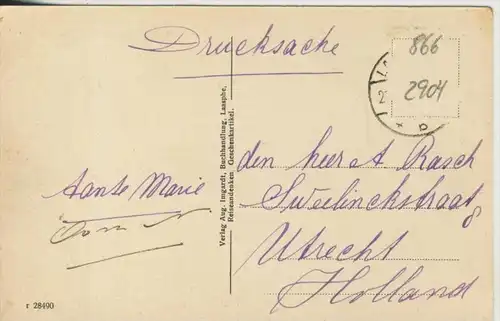 Drucksache
866
2904
Verlag Aug. Imgardt, Buchhandlung, Laasphe,
Reiseandenken, Geschenkartikel.
Tante Marie
Oom
den heer A Rasch
Sweelinckstraat 8
Utrecht
Holland
r 28490